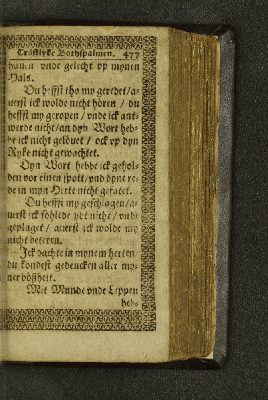 Tröstlyke Bothpsalmen. 477
hauen vnde gelecht vp mynen
Hals.
Du heffst tho my geredet/a-
uerst ick wolde nicht hören / du
heffst my geropen / vnde ick ant-
werde nicht/an dyn Wort heb-
be ick nicht gelöuet / ock vp dyn
Ryke nicht gewachtet.
Dyn Wort hebbe ick gehol-
den vor einen spott/vnd dyne re-
de in myn Herte nicht gefatet.
Du heffst my geschlagen/a-
uerst ick föhlede ydt nicht / vnde
geplaget / auerst ick wolde my
nicht beteren.
Ick dachte in mynem herten/
du kondest gedencken aller my-
ner bößheit.
Mit Munde vnde Lippen
heb-